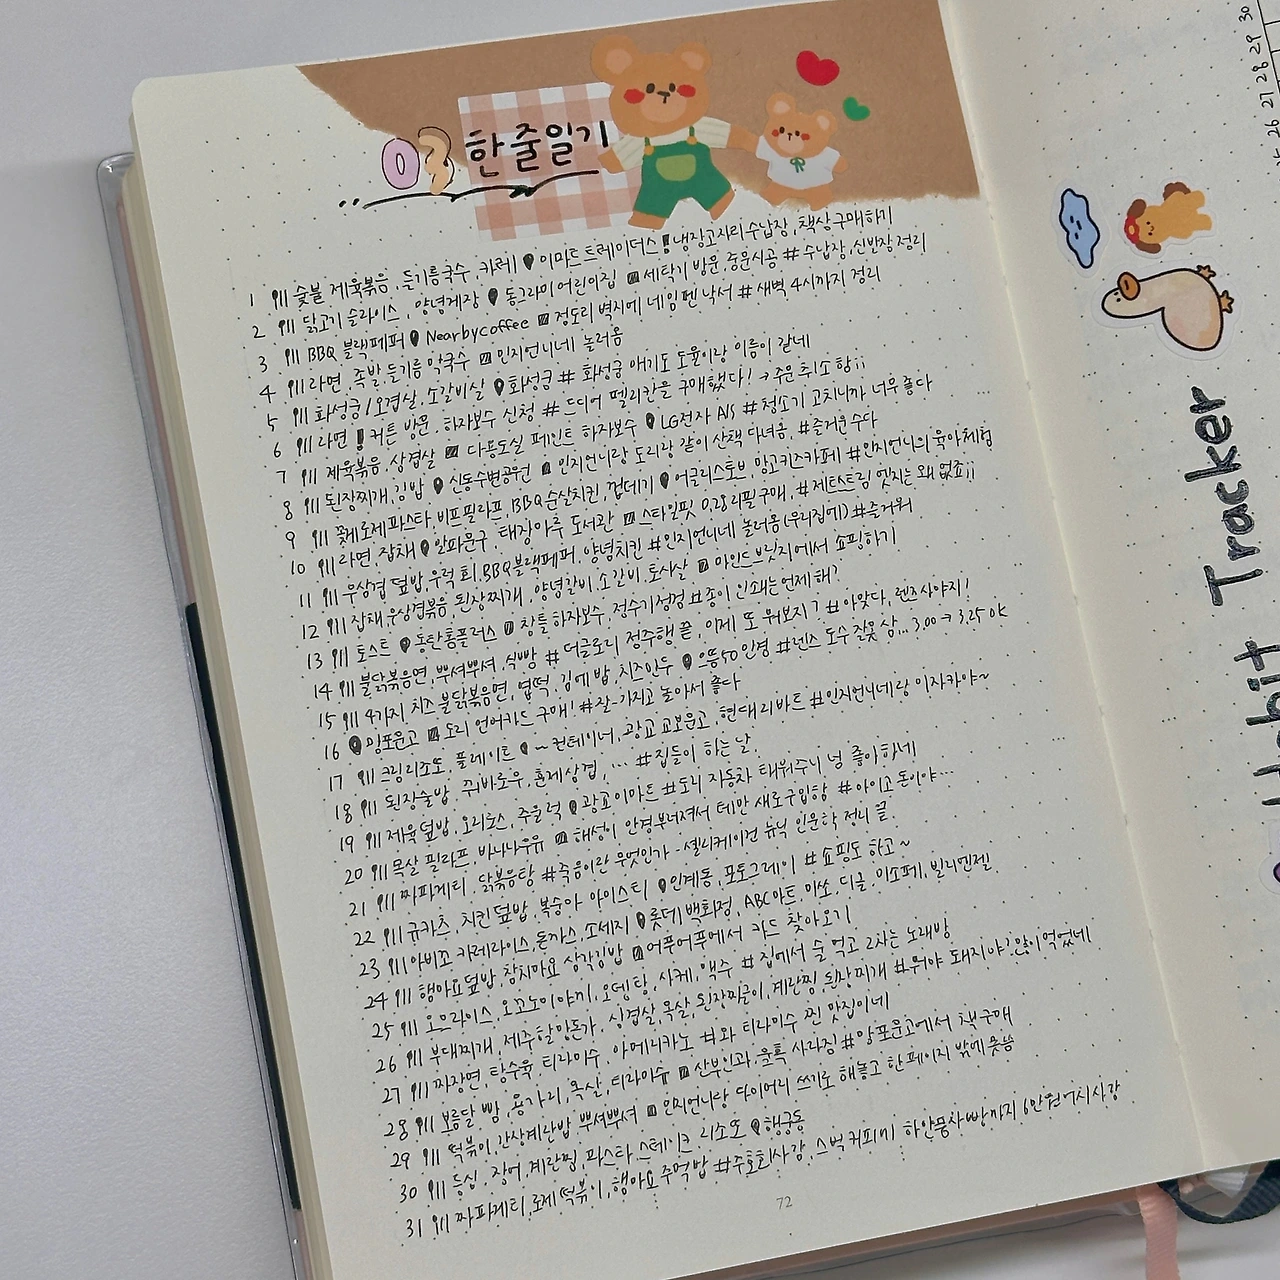 03 한줄일기
1 숯불 제육볶음, 들기름국수, 카레 이마트 트레이더스 냉장고자리 수납장, 책상 구매하기
2 닭고기 슬라이스, 양념게장 동그라미 어린이집 세탁기 방문, 중문시공 # 수납장, 신발장 정리
3 BBQ 블랙페퍼 Nearbycoffee 정도리 벽지에 네임펜 낙서 # 새벽 4시까지 정리
4 라면, 족발, 들기름 막국수 인지언니네 놀러옴
5 화성궁/오겹살, 소갈비살 화성궁 # 화성궁 애기도 도율이랑 이름이 같네
6 라면 커튼 방문, 하자보수 신청 # 드디어 펠리칸을 구매했다! → 주문 취소함;;
7 제육볶음, 삼겹살 다용도실 페인트 하자보수 LG전자 A/S # 청소기 고치니까 너무 좋다
8 된장찌개, 김밥 신동수변공원 인지언니랑 도리랑 같이 산책 다녀옴, #즐거운수다
9 꽃게로제파스타, 비프필라프, BBQ순살치킨, 껍데기 어글리스토브, 망고키즈카페 #인지언니의 육아체험
10 라면, 잡채 알파문구, 태장마루 도서관 스타일핏 0.28 리필구매, #제트스트림 엣지는 왜 없죠;;
11 우삼겹 덮밥, 우럭 회, BBQ블랙페퍼, 양념치킨 #인지언니네 놀러옴(우리집에) #즐거워
12 잡채, 우삼겹볶음, 된장찌개, 양념갈비, 소갈비, 토시살 마인드브릿지에서 쇼핑하기
13 토스트 동탄홈플러스 창틀 하자보수, 정수기점검 #종이 인쇄는 언제 해?
14 불닭볶음면, 뿌셔뿌셔, 식빵 # 더글로리 정주행 끝, 이제 또 뭐보지? # 아 맞다, 렌즈사야지!
15 4가지 치즈 불닭볶음면, 엽떡, 김에 밥, 치즈만두 으뜸50안경 #렌즈 도수 잘못 삼... 3.00 → 3.25 OK
16 망포문고 도리 언어카드 구매! #잘~가지고 놀아서 좋다
17 크림리조또, 플레이트 ~ 컨테이너, 광교 교보문고, 현대리바트 #인지언니네랑 이자카야~
18 된장술밥, 꿔바로우, 훈제삼겹, ... #집들이 하는 날
19 제육덮밥, 오리로스, 주물럭 광교이마트 #도리 자동차 태워주니 넘 좋아하네
20 목살 필라프, 바나나우유 해성이 안경부러져서 테만 새로구입함 #아이고 돈이야...
21 짜파게티, 닭볶음탕 #죽음이란 무엇인가 - 셸리케이건 뉴식 인문학 정리 끝
22 규카츠, 치킨덮밥, 복숭아 아이스티 인계동, 포토그레이 # 쇼핑도 하고~
23 아비꼬 카레라이스, 돈까스, 소세지 롯데백화점, ABC마트, 미쏘, 디글, 미소페, 빌리엔젤
24 햄마요덮밥, 참치마요 삼각김밥 어푸어푸에서 카드 찾아오기
25 오므라이스, 오코노미야끼, 오뎅탕, 사케, 맥주 # 집에서 술 먹고 2차는 노래방
26 부대찌개, 제주할망돈가, 삼겹살, 목살, 된장찌글이, 계란찜, 된장찌개 #뭐야 돼지야? 많이 먹었네
27 짜장면, 탕수육 티라미수 아메리카노 #와 티라미수 찐 맛집이네
28 보름달 빵, 용가리, 목살, 티라미수 산부인과, 물혹 사라짐 #망포문고에서 책구매
29 떡볶이, 간장계란밥 뿌셔뿌셔 인지언니랑 다이어리 쓰기로 해놓고 한 페이지 밖에 못씀
30 등심, 장어, 계란찜, 파스타, 스테이크, 리조또 행궁동
31 짜파게티, 로제떡볶이, 햄마요 주먹밥 #주호회사감, 스벅커피에 하얀풍차빵까지 6만원어치사감
72
26 27 28 29 30
Habit Tracker